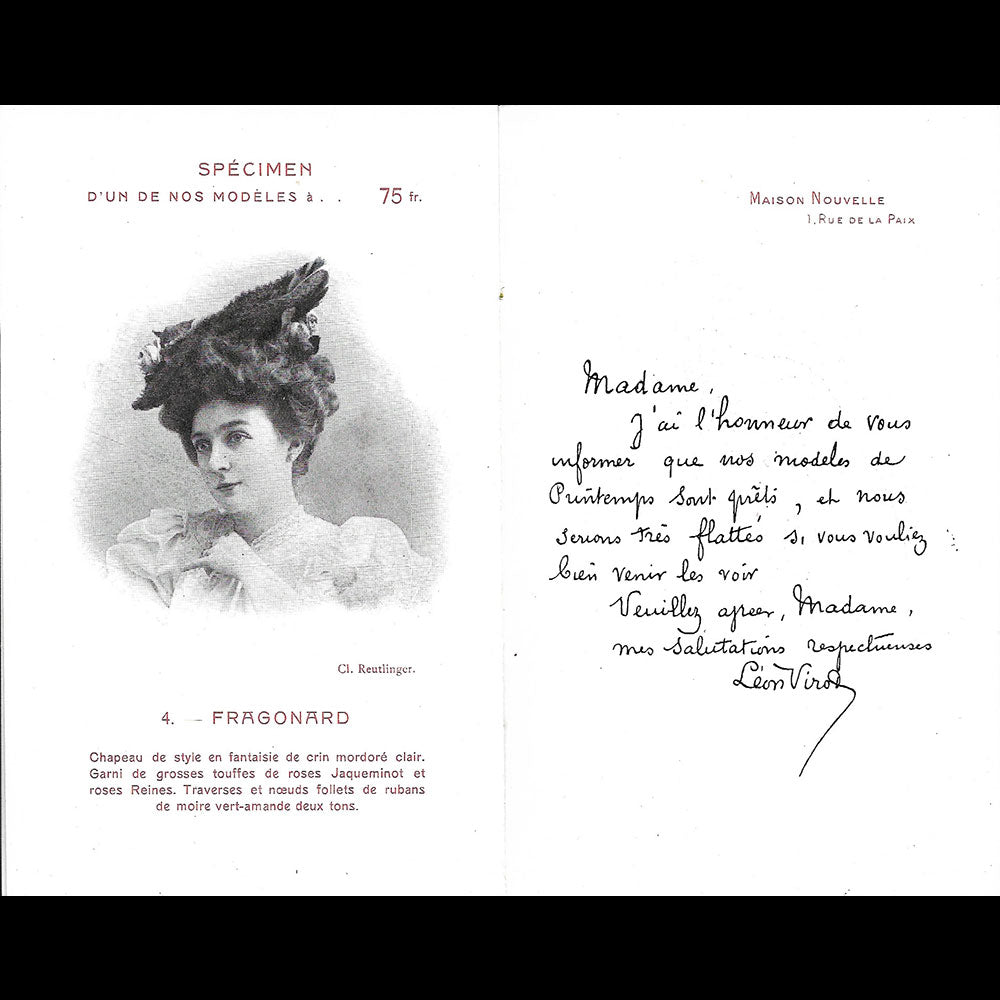 SPÉCIMEN
D'UN DE NOS MODÈLES à . . 75 fr.
Cl. Reutlinger.
4. — FRAGONARD
Chapeau de style en fantaisie de crin mordoré clair.
Garni de grosses touffes de roses Jaqueminot et
roses Reines. Traverses et nœuds follets de rubans
de moire vert-amande deux tons.
MAISON NOUVELLE
1, RUE DE LA PAIX
Madame,
J'ai l'honneur de vous
informer que nos modeles de
Printemps sont prêts, et nous
serions très flattés si vous vouliez
bien venir les voir
Veuillez agreer, Madame,
mes salutations respectueuses
Léon Virot